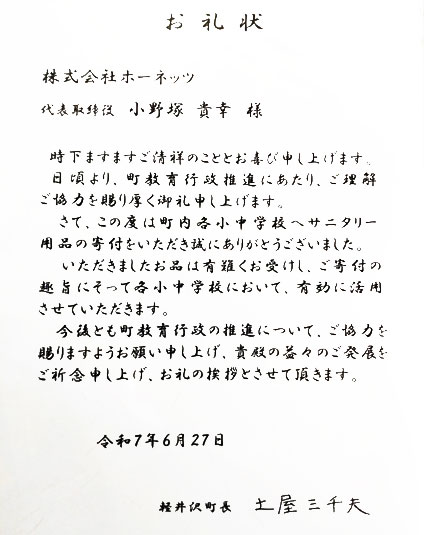 お礼状
株式会社ホーネッツ
代表取締役 小野塚 貴幸 様
時下ますますご清祥のこととお喜び申し上げます。
日頃より、町教育行政推進にあたり、ご理解
ご協力を賜り厚く御礼申し上げます。
さて、この度は町内各小中学校へサニタリー
用品の寄付をいただき誠にありがとうございました。
いただきましたお品は有難くお受けし、ご寄付の
趣旨にそって各小中学校において、有効に活用
させていただきます。
今後とも町教育行政の推進について、ご協力を
賜りますようお願い申し上げ、貴殿の益々のご発展を
ご祈念申し上げ、お礼の挨拶とさせて頂きます。
令和7年6月27日
軽井沢町長 土屋三千夫